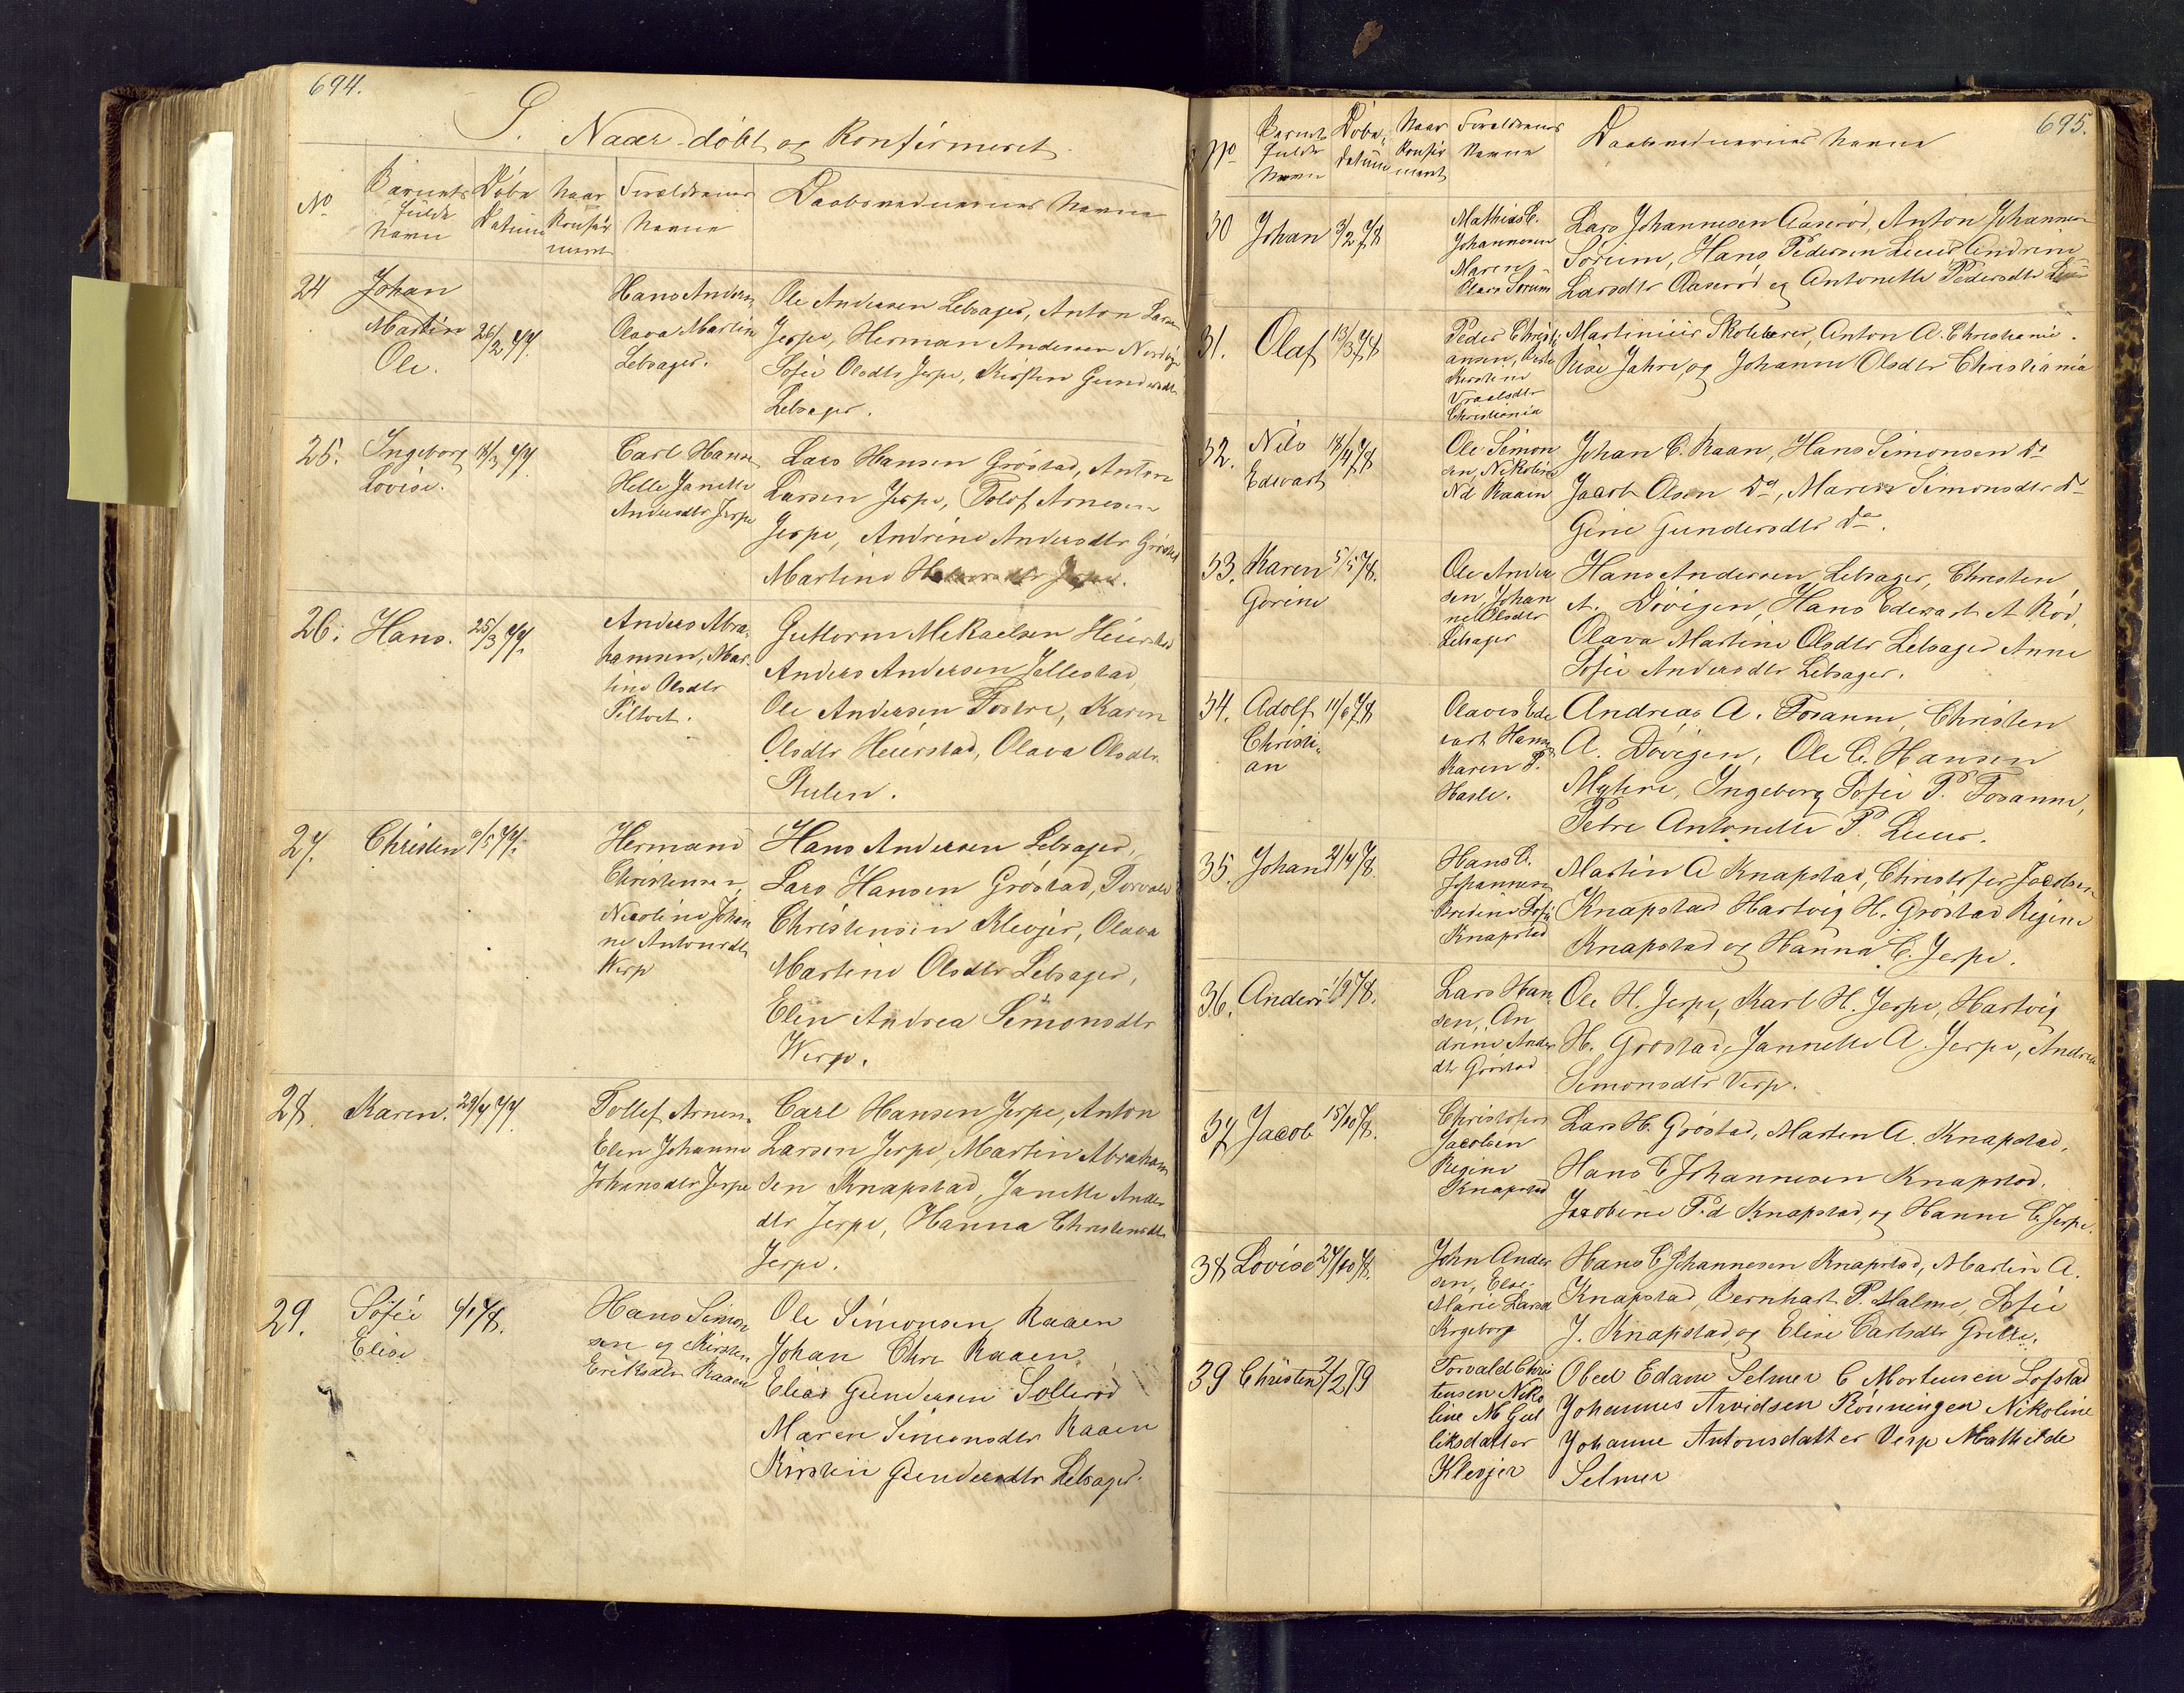 694.
Naar döbt og Konfirmeret
No
Barnets fulde Navn
Döbe Datum
Naar Konfirmeret
Forældrenes Navne
Daabsvidnernes Navne
24
Johan
Martin
Ole.
26/2 77.
Hans Anders
Olava Martin
Lebsager.
Ole Andersen Lebsager, Anton Larsen
Jerpe, Herman Andersen
Sofie Olsdtr Jerpe, Kirsten Gundersdtr
Lebsager.
25.
Ingeborg
Lovise.
18/3 77
Carl Hansen
Helle Janette
Andersdtr Jerpe
Lars Hansen Gröstad, Anton
Larsen Jerpe, Tolof Arnesen
Jerpe, Andrine Andersdtr Gröstad
Martine
26.
Hans.
25/3 77.
Anders Abra-
hamsen, Mar-
tine Olsdtr
Guttorm Mikaelsen Heierstad
Anders Andersen Jellestad,
Ole Andersen Fostre, Karen
Olsdtr Heierstad, Olava Olsdtr
Stulen.
27.
Christen
9/5 77.
Hermand
Christensen,
Nicoline Johan
ne Antonsdtr
Werp
Hans Andersen Lebsager,
Lars Hansen Gröstad, Torvald
Christensen Klevjer, Olava
Martine Olsdtr Lebsager,
Elen Andrea Simonsdtr
Werp.
28.
Karen.
29/7 77.
Tollef Arnesen
Elen Johanne
Johansdtr Jerpe
Carl Hansen Jerpe, Anton
Larsen Jerpe, Martin Abraham
sen Knapstad, Janette Anders
dtr Jerpe, Hanna Christensdtr
Jerpe.
29.
Sofie
Elise
6/1 78.
Hans Simon
sen og Kirsten
Eriksdtr Raaen
Ole Simonsen Raaen
Johan Chr. Raaen.
Elias Gundersen Sollerod
Maren Simonsdtr Raaen
Kirsten Gundersdtr Lebsager.
695.
No
Barnets fulde Navn
Döbe Datum
Naar Konfirmeret
Forældrenes Navne
Daabsvidnernes Navne
30
Johan
3/2 78
Mathias C.
Johannesen
Maren
Olava Sorum
Lars Johannesen Aaserod, Anton Johannes
Sörum, Hans Pedersen Luur, Andrine
Larsdtr Aaserod og Antonette Pedersdtr
31.
Olaf
13/3 78
Peder Christi
ansen,
Kirstine
Vraalsdtr
Christiania
Martinius Skotterer, Anton A. Christiania.
Rise Jahre, og Johanne Olsdtr Christiania
32.
Nils
Edevart
18/4 78
Ole Simon
sen, Nikoline
Nd Raaen
Johan C. Raan, Hans Simonsen do
Jacob Olsen do, Maren Simonsdtr do
Gine Gundersdtr do.
33.
Karen
Gorine
5/5 78.
Ole Ander
sen, Johan
ne Olsdtr
Lebsager
Hans Andersen Lebsager, Christen
A. Dövigen, Hans Edevart A Röd,
Olava Martine Olsdtr Lebsager Anne
Sofie Andersdtr Lebsager.
34.
Adolf
Christi-
an
11/6 78
Olaves Ede
vart Hansen
Karen P.
Hasle.
Andreas A. Fosanne, Christen
A. Dövigen, Ole C. Hansen
Myhre, Ingeborg Sofie P. Fosanne,
Petre Antonette P. Luur.
35.
Johan
21/7 78.
Hans C.
Johannesen
Bredine Sofie
Knapstad
Martin A Knapstad, Christofer Jacobsen
Knapstad Hartvig H. Gröstad Regine
Knapstad og Hanna C. Jerpe.
36.
Anders
1/9 78.
Lars Han
sen, An
drine Anders
dtr Gröstad
Ole H. Jerpe, Karl H. Jerpe, Hartvig
H. Gröstad, Jannette A. Jerpe, Andrea
Simonsdtr Verp.
37
Jacob
15/10 78.
Christofer
Jacobsen
Regine
Knapstad
Lars H. Gröstad, Marten A. Knapstad,
Hans C Johannesen Knapstad.
Jacobine P.d Knapstad, og Hanne C. Jerpe.
38
Lovise
27/10 78.
John Ander
sen, Else
Marie Larsd
Krgeborg
Hans C Johannesen Knapstad, Martin A.
Knapstad, Bernhart P. Malme, Sofie
J. Knapstad, og Elise Carlsdtr Grette.
39
Christen
2/2 79
Torvald Chris
tensen Niko
line M Gul
liksdatter
Klevjer
Obed Edam Selmer C Mortensen Lofstad
Johannes Arvidsen Rönningen Nikoline
Johanne Antonsdatter Verp Mathilde
Selmer